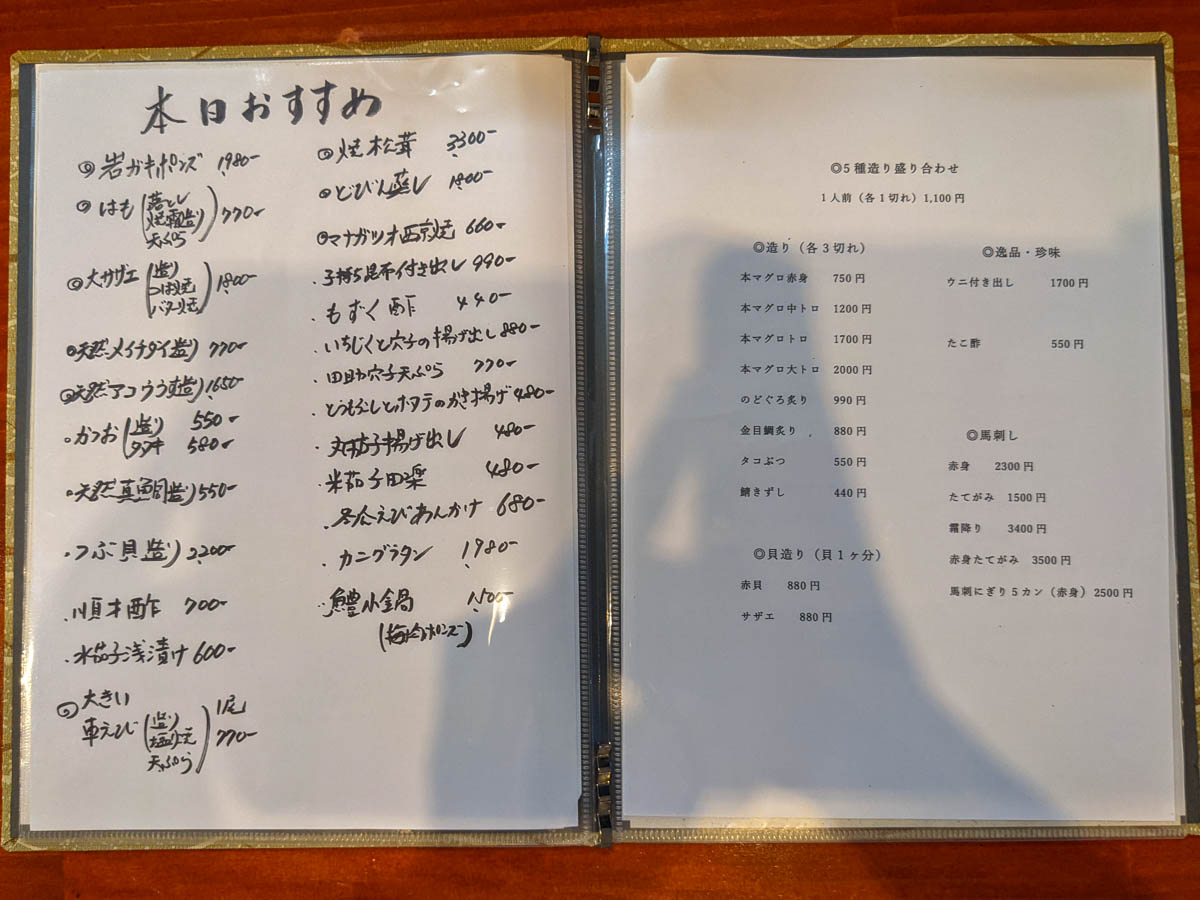 本日おすすめ
岩ガキポンズ 1980-
はも(落とし
焼霜造り
天ぷら) 770-
大サザエ(造り
つぼ焼
バター焼) 1800-
天然メイチダイ造り 770-
天然アコウうす造り 1650-
かつお(造り 550-
タタキ 580-
天然真鯛造り 550-
つぶ貝造り 2200-
順才酢 700-
水茄子浅漬け 600-
大きい
車えび(造り
塩焼
天ぷら) 1尾
770-
焼松茸 3300-
どびん蒸し 1800-
マナガツオ西京焼 660-
子持ち昆布付き出し 990-
もずく酢 440-
いちじくと穴子の揚げ出し 880-
田助穴子天ぷら 770-
とうもろこしとホタテのかき揚げ 480-
丸茄子揚げ出し 480-
米茄子田楽 480-
冬瓜えびあんかけ 680-
カニグラタン 1980-
鱧小鍋
ポンズ)
◎5種造り盛り合わせ
1人前(各1切れ)1,100円
◎造り(各3切れ)
本マグロ赤身 750円
本マグロ中トロ 1200円
本マグロトロ 1700円
本マグロ大トロ 2000円
のどぐろ炙り 990円
金目鯛炙り 880円
タコぶつ 550円
鯖きずし 440円
◎貝造り(貝1ヶ分)
赤貝 880円
サザエ 880円
◎逸品・珍味
ウニ付き出し 1700円
たこ酢 550円
◎馬刺し
赤身 2300円
たてがみ 1500円
霜降り 3400円
赤身たてがみ 3500円
馬刺にぎり5カン(赤身)2500円